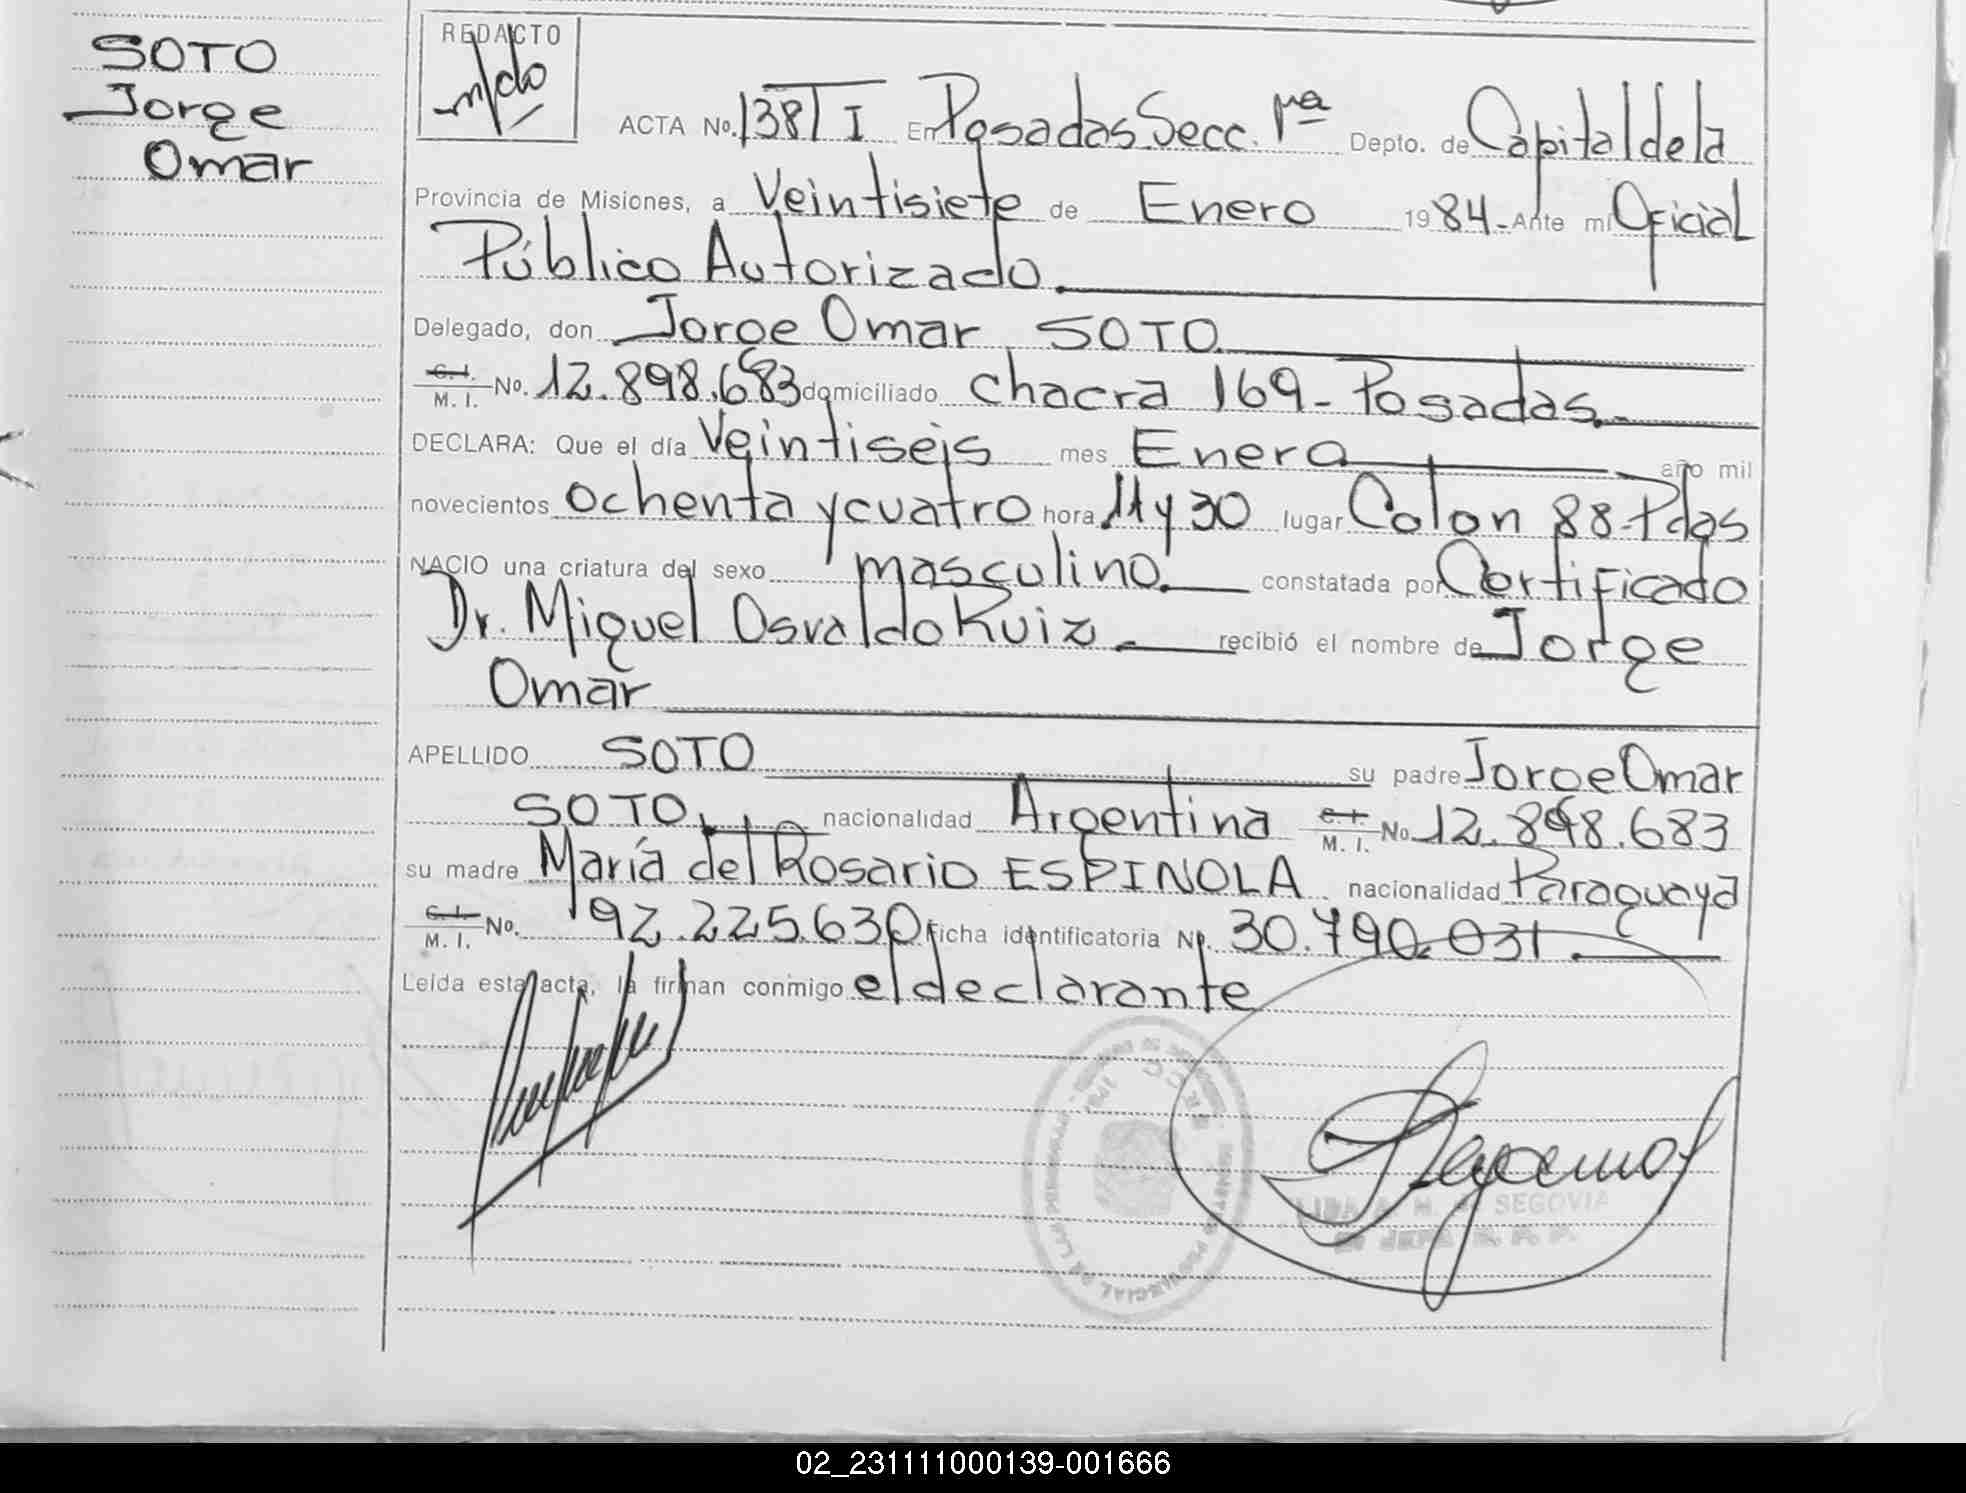 SOTO
Jorge
Omar
REDACTO
ACTA No. 138 T I En Posadas Secc. 1ra Depto. de Capital de la
Provincia de Misiones, a Veintisiete de Enero 1984- Ante mi Oficial
Público Autorizado.
Delegado, don Jorge Omar SOTO
C.I. M. I. No. 12.898.683 domiciliado chacra 169- Posadas.-
DECLARA: Que el día Veintiseis mes Enero año mil
novecientos ochenta y cuatro hora 11 y 30 lugar Colon 88-Pdas
NACIO una criatura del sexo masculino. constatada por Certificado
Dr. Miguel Osvaldo Ruiz.- recibió el nombre de Jorge
Omar
APELLIDO SOTO su padre Jorge Omar
SOTO. nacionalidad Argentina C.I. M. I. No. 12.898.683
su madre María del Rosario ESPINOLA nacionalidad Paraguaya
C.I. M. I. No. 92.225.630 Ficha identificatoria No. 30.790.031.
Leída esta acta, la firman conmigo el declarante
H. de SEGOVIA
02_231111000139-001666